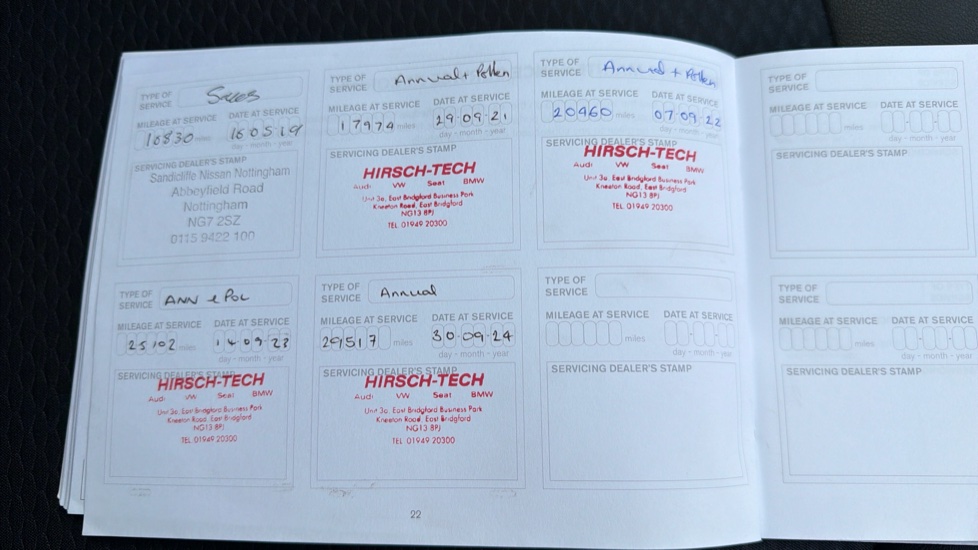 TYPE OF SERVICE
MILEAGE AT SERVICE DATE AT SERVICE
16830 miles 16 05 19
day - month - year
Sandicliffe Nissan Nottingham
Abbeyfield Road
Nottingham
NG7 2SZ
0115 9422 100
TYPE OF SERVICE Annual + Pollen
MILEAGE AT SERVICE DATE AT SERVICE
17974 miles 29 09 21
day - month - year
SERVICING DEALER'S STAMP
HIRSCH-TECH
Audi VW Seat BMW
Unit 3a, East Bridgford Business Park
Kneeton Road, East Bridgford
NG13 8PJ
TEL 01949 20300
TYPE OF SERVICE Annual + Pollen
MILEAGE AT SERVICE DATE AT SERVICE
20460 miles 07 09 22
day - month - year
SERVICING DEALER'S STAMP
HIRSCH-TECH
Audi VW Seat BMW
Unit 3a, East Bridgford Business Park
Kneeton Road, East Bridgford
NG13 8PJ
TEL 01949 20300
TYPE OF SERVICE
MILEAGE AT SERVICE DATE AT SERVICE
miles
SERVICING DEALER'S STAMP
TYPE OF SERVICE ANN & POL
MILEAGE AT SERVICE DATE AT SERVICE
25102 miles 14 09 23
day - month - year
SERVICING DEALER'S STAMP
HIRSCH-TECH
Audi VW Seat BMW
Unit 3a, East Bridgford Business Park
Kneeton Road, East Bridgford
NG13 8PJ
TEL 01949 20300
TYPE OF SERVICE Annual
MILEAGE AT SERVICE DATE AT SERVICE
29517 miles 30 09 24
day - month - year
SERVICING DEALER'S STAMP
HIRSCH-TECH
Audi VW Seat BMW
Unit 3a, East Bridgford Business Park
Kneeton Road, East Bridgford
NG13 8PJ
TEL 01949 20300
TYPE OF SERVICE
MILEAGE AT SERVICE DATE AT SERVICE
miles
day - month - year
SERVICING DEALER'S STAMP
TYPE OF SERVICE
MILEAGE AT SERVICE DATE AT SERVICE
miles
day - month - year
SERVICING DEALER'S STAMP
22